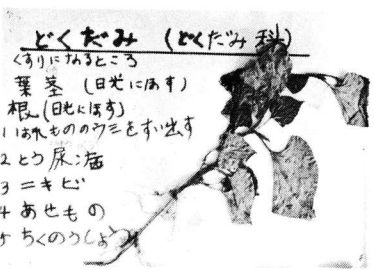 どくだみ (どくだみ科)
くすりになるところ
葉茎 (日光にほす)
根 (日光にほす)
1 はれもののウミをすい出す
2 とう尿病
3 ニキビ
4 あせもの
5 ちくのうしょう